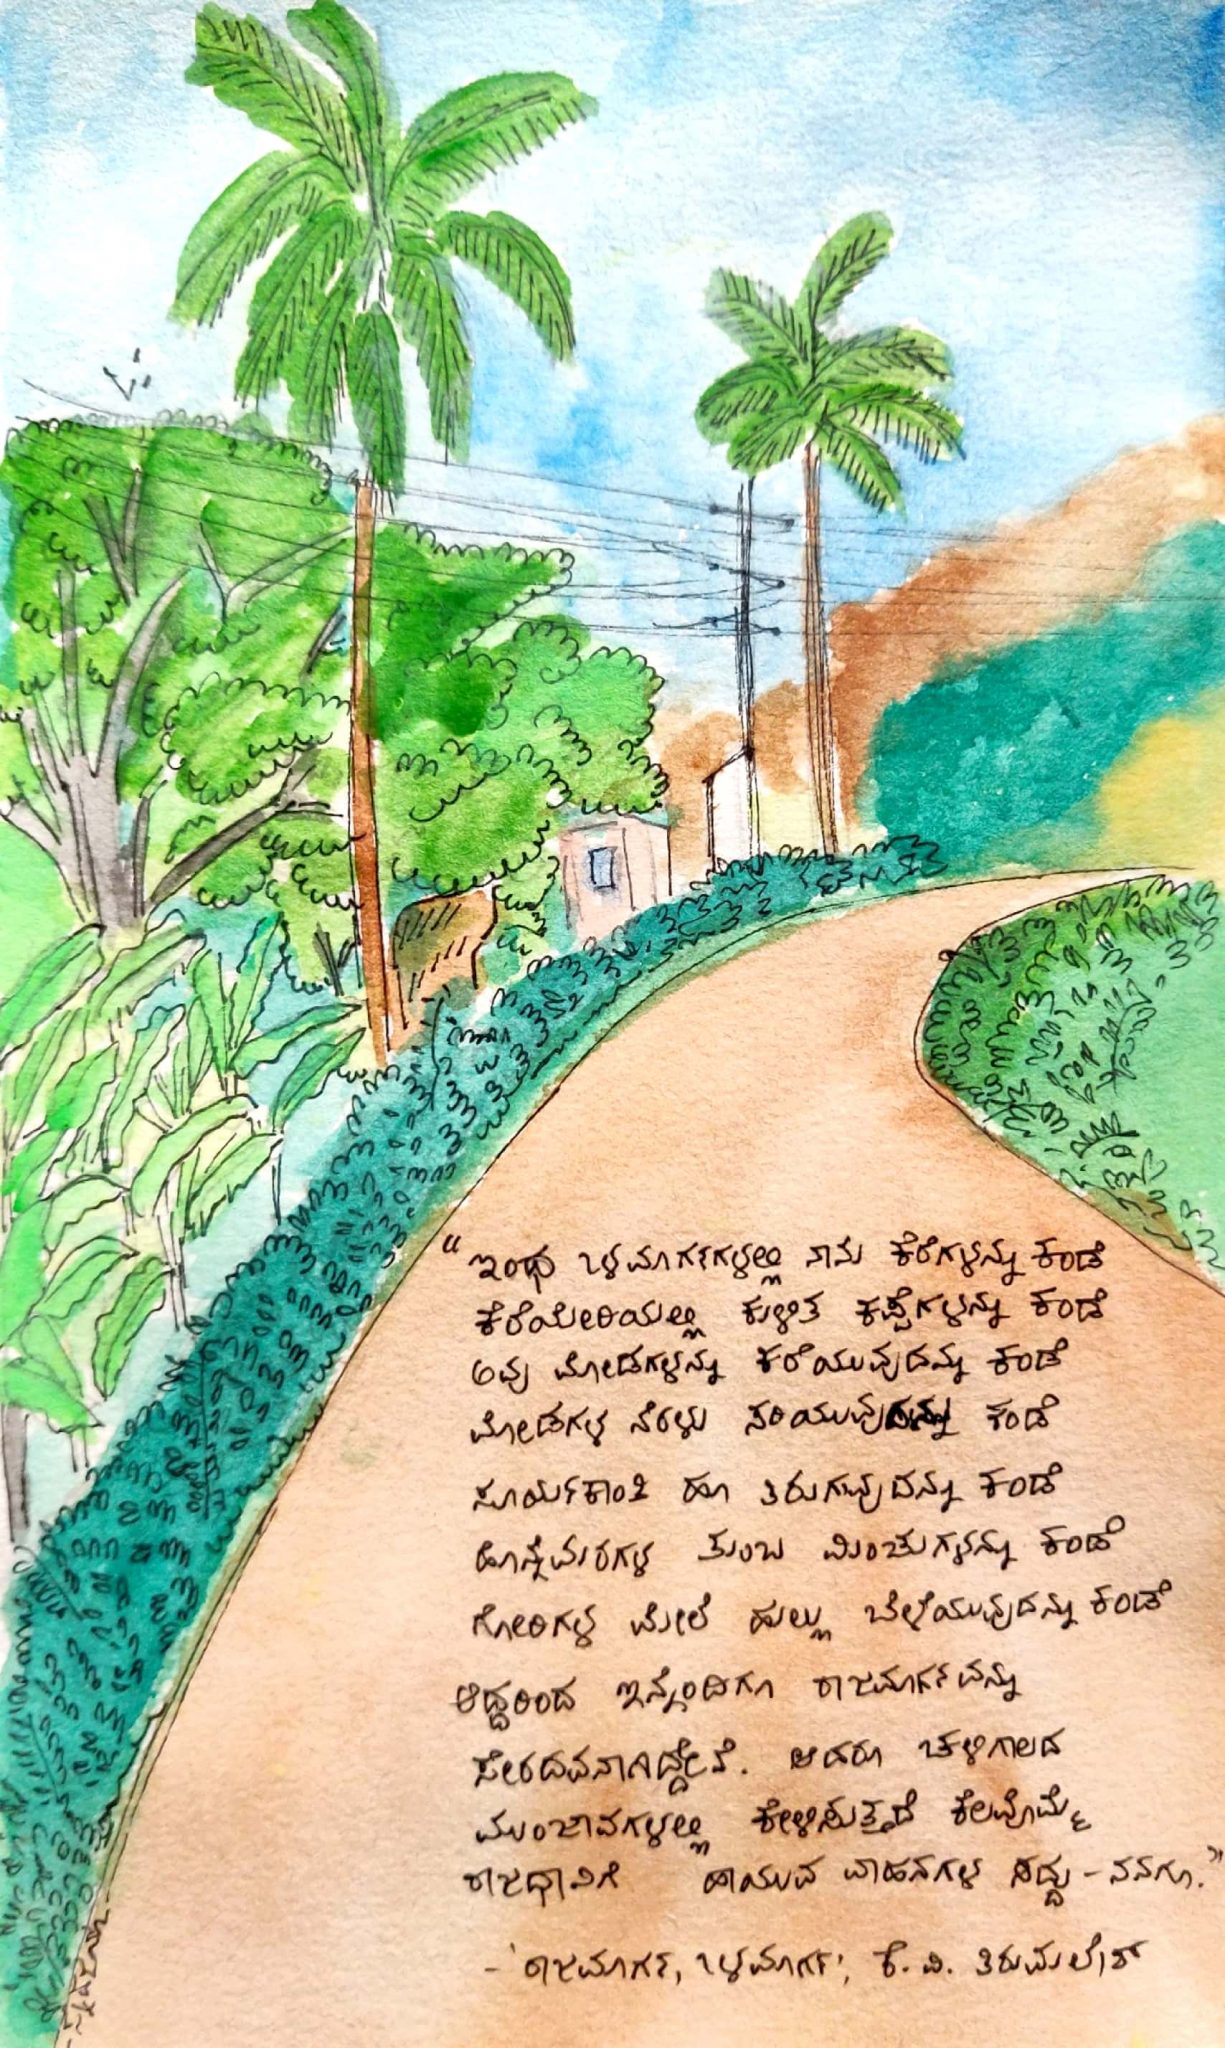 "ಇಂಥ ಒಳಮಾರ್ಗಗಳಲ್ಲಿ ನಾನು ಕೆರೆಗಳನ್ನು ಕಂಡೆ
ಕೆರೆಯೇರಿಯಲ್ಲಿ ಕುಳಿತ ಕಪ್ಪೆಗಳನ್ನು ಕಂಡೆ
ಅವು ಮೋಡಗಳನ್ನು ಕರೆಯುವುದನ್ನು ಕಂಡೆ
ಮೋಡಗಳ ನೆರಳು ಸರಿಯುವುದನ್ನು ಕಂಡೆ
ಸೂರ್ಯಕಾಂತಿ ಹೂ ತಿರುಗುವುದನ್ನು ಕಂಡೆ
ಹೊನ್ನೆಮರಗಳ ತುಂಬ ಮಿಂಚುಗಳನ್ನು ಕಂಡೆ
ಗೋರಿಗಳ ಮೇಲೆ ಹುಲ್ಲು ಬೆಳೆಯುವುದನ್ನು ಕಂಡೆ
ಆದ್ದರಿಂದ ಇನ್ನೆಂದಿಗೂ ರಾಜಮಾರ್ಗವನ್ನು
ಸೇರದವನಾಗಿದ್ದೇನೆ. ಆದರೂ ಚಳಿಗಾಲದ
ಮುಂಜಾವಗಳಲ್ಲಿ ಕೇಳಿಸುತ್ತದೆ ಕೆಲವೊಮ್ಮೆ
ರಾಜಧಾನಿಗೆ ಹಾಯುವ ವಾಹನಗಳ ಸದ್ದು - ನನಗೂ."
- 'ರಾಜಮಾರ್ಗ, ಒಳಮಾರ್ಗ', ಕೆ. ವಿ. ತಿರುಮಲೇಶ್